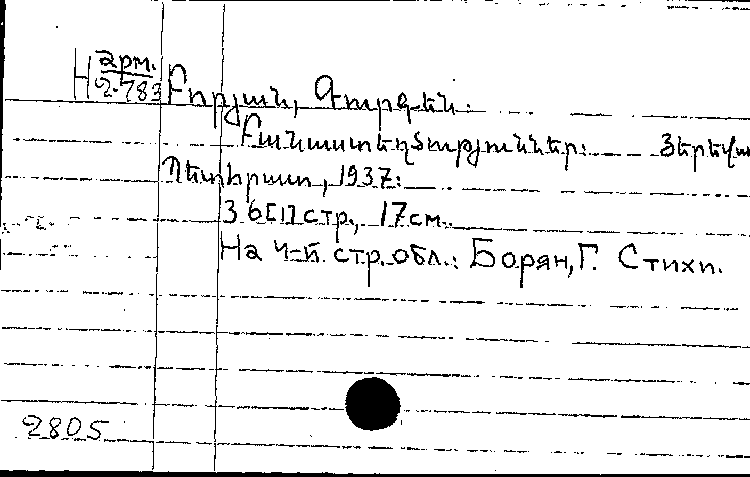 Н арм. 2-783
Բորյան, Գուրգեն.
Բանաստեղծություններ: Յերևա
Պետհրատ, 1937:
36[1] стр., 17 см.
На 4-й стр. обл.: Борян, Г. Стихи.
2805